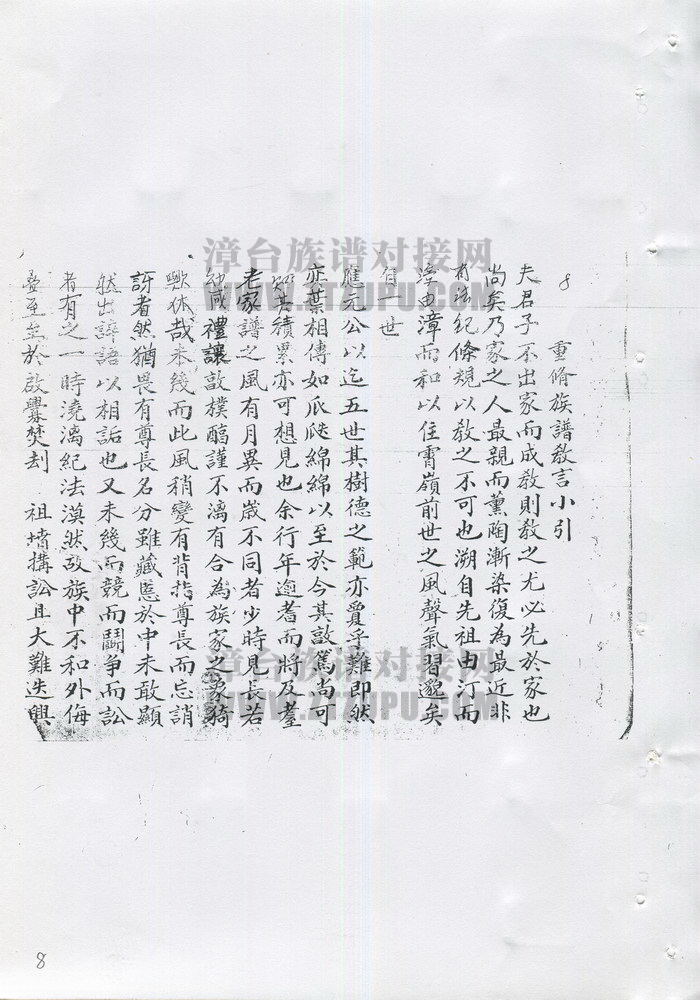 8
重脩族譜敎言小引
夫君子不出家而成敎則敎之尤必先於家也
尚矣乃家之人最親而薰陶漸染復為最近非
有法紀條規以敎之不可也溯自先祖由汀而
漳由漳而和以住霄嶺前世之風聲氣習邈矣
自一世
應元公以迄五世其樹德之範亦敻乎難即然
奕葉相傳如瓜瓞綿綿以至於今其敦篤尚可
其積累亦可想見也余行年逾耆而將及耋
老家譜之風有月異而歲不同者少時見長若
幼咸禮讓敦樸醕謹不漓有合為族家之象猗
歟休哉未幾而此風稍變有背指尊長而忘誚
訝者然猶畏有尊長名分雖藏慝於中未敢顯
然出誶語以相詬也又未幾而競而鬪争而訟
者有之一時澆漓紀法漠然故族中不和外侮
疊至至於啟釁焚刦 祖墳搆訟且大難迭興
漳台族谱对接网
WWW.ZTZUPU.COM
漳台族谱对接网
WWW.ZTZUPU.COM
8